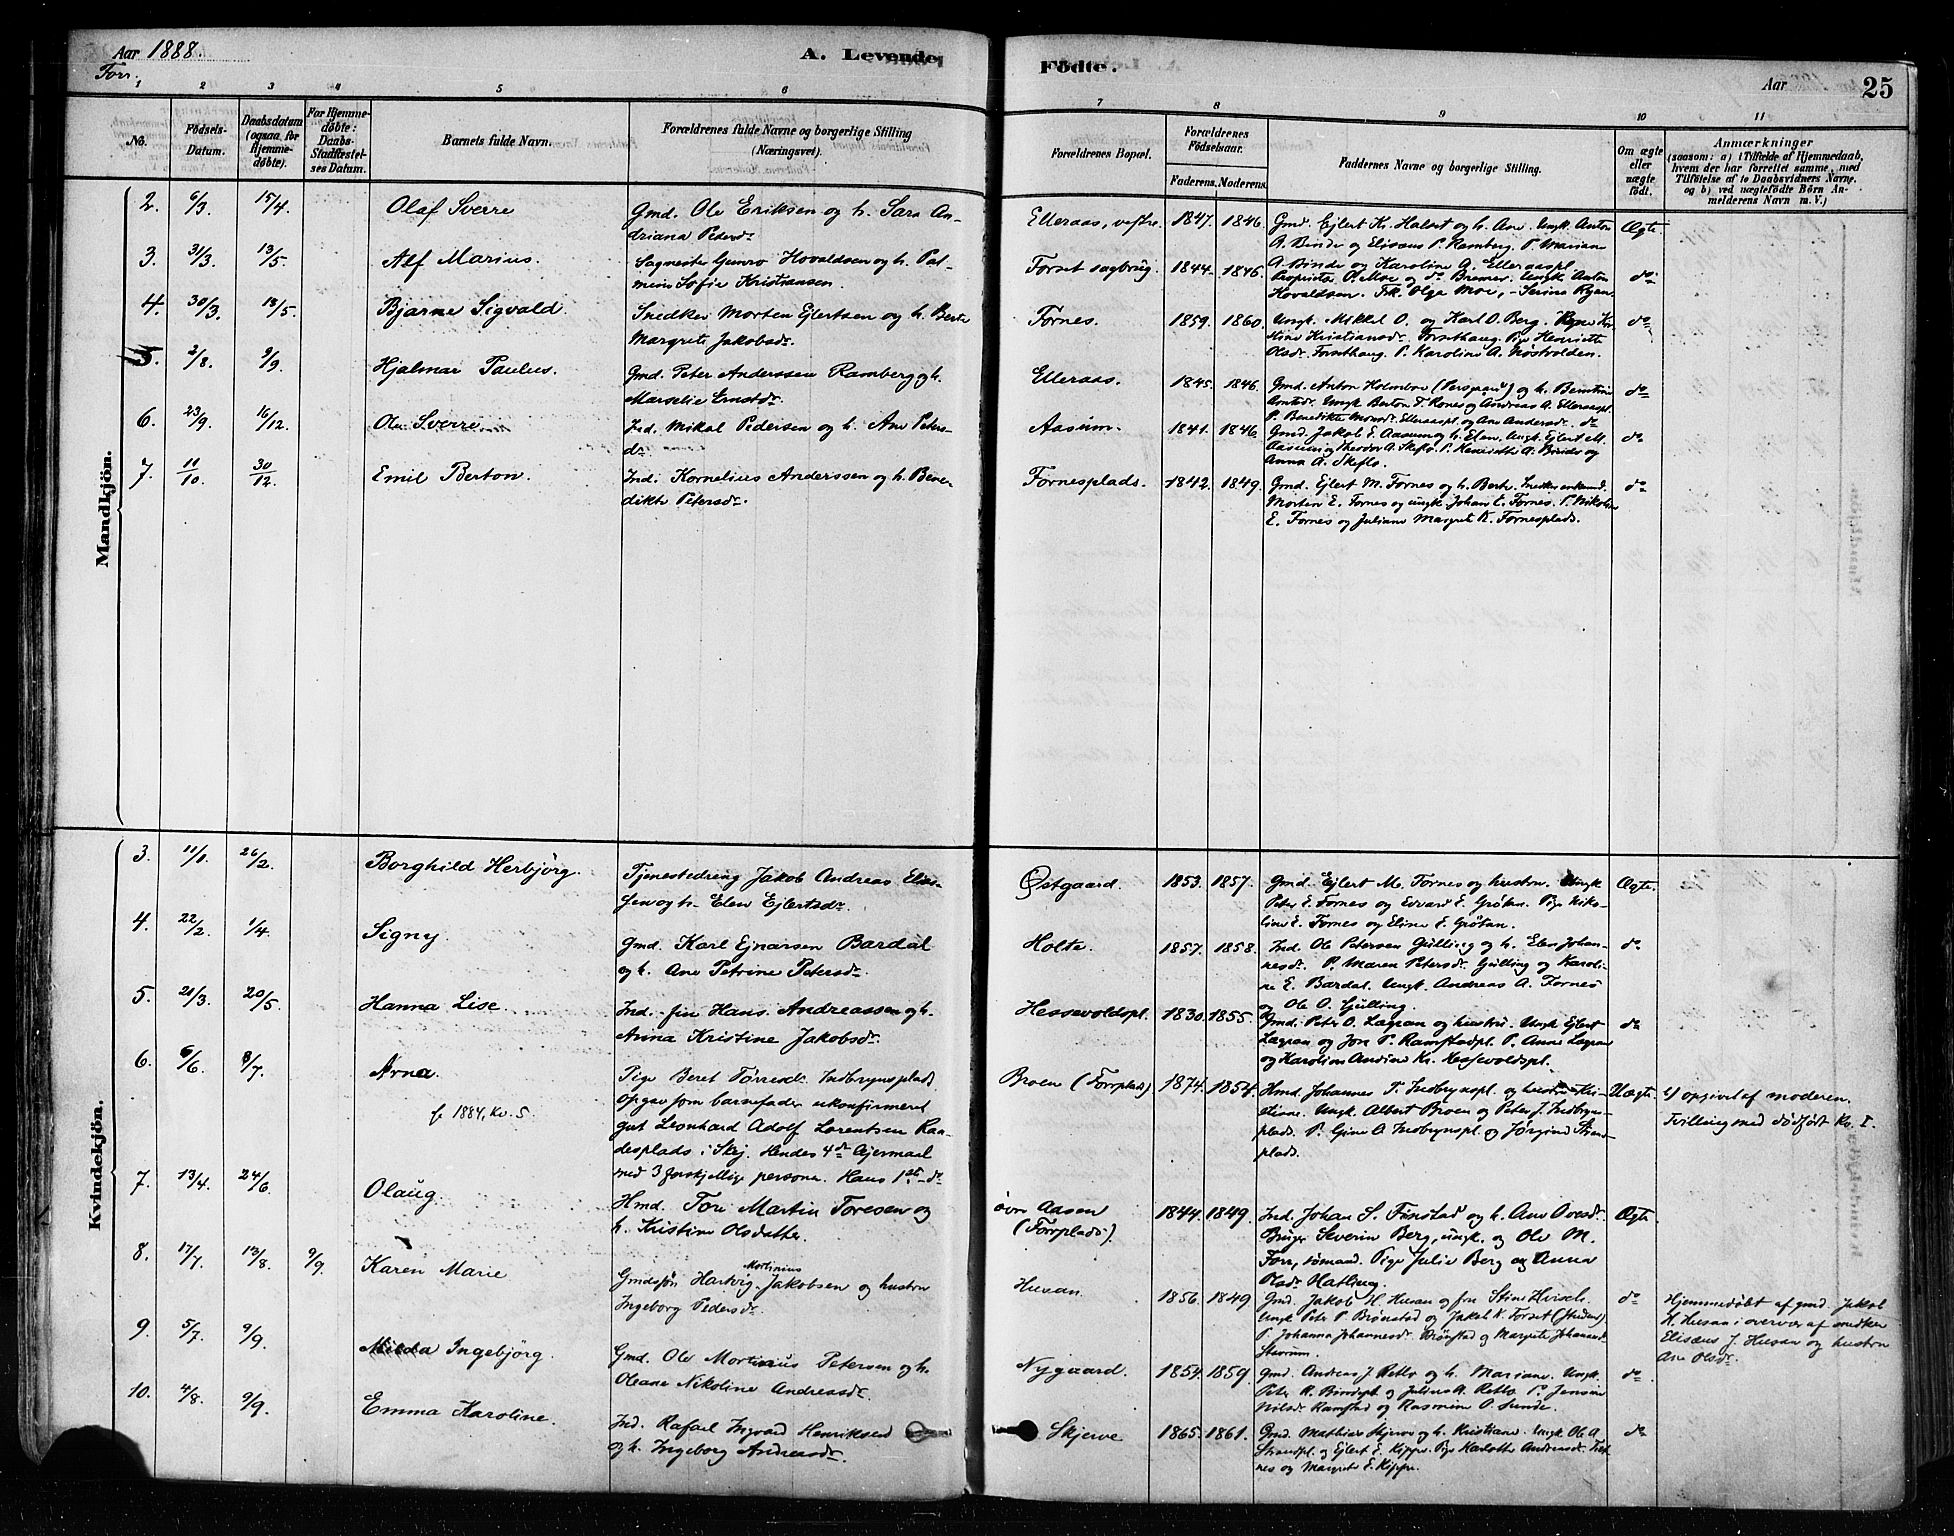 Aar 1888.
A. Levende
Födte.
Aar
25
Forr.
1 2 3 4 5 6 7 8 9 10 11
No.
Födsels-
Datum.
Daabsdatum
(ogsaa for
Hjemme-
döbte).
For Hjemme-
döbte:
Daabs-
Stadfæstel-
ses Datum.
Barnets fulde Navn.
Forældrenes fulde Navne og borgerlige Stilling
(Næringsvei).
Forældrenes Bopæl.
Forældrenes
Födselsaar.
Faderens. Moderens.
Faddernes Navne og borgerlige Stilling.
Om ægte
eller
uægte
födt.
Anmærkninger
(saasom: a) i Tilfælde af Hjemmedaab,
hvem der har forrettet samme, med
Tilföielse af to Daabsvidners Navne,
og b) ved uægtefödte Börn An-
melderens Navn m. V.)
Mandkjön.
2. 6/3 15/4 Olaf Sverre
Gmd. Ole Eriksen og h. Sara An-
driana Petersdr
Elleraas, vestre. 1847. 1846.
Gmd. Ejlert K. Halset og h. Ane. Ungk. Anton
A. Binde og Elisæus P. Ramberg. P. Marian
A. Binde og Karoline A. Elleraaspl.
Ægte
3. 31/3 13/5. Alf Marius.
Sagmester Gunro Hovaldsen og h. Pal-
mine Sofie Kristiansen.
Forset sagbrug. 1844. 1846.
Proprietær O. Moe og do Bremer. Ungk. Anton
Hovaldsen. Frk. Olga Moe, Serina Ryan.
do
4. 30/3. 13/5. Bjarne Sigvald
Snedker Morten Ejlertsen og h. Berte
Margrete Jakobsdr
Fornes. 1859. 1860.
Ungk. Mikkel O. og Karl O. Berg.
stine Kristiansdr Forsethaug. Pige Henriette
Olsdr Forsethaug. P. Karoline A. Mostvolden.
do
5. 2/8 9/9. Hjalmar Paulus.
Gmd. Peter Anderssen Ramberg og h.
Marselie Ernstdr
Elleraas. 1845. 1846.
Gmd. Anton Holmboe og h. Berntine
Arntsdr. Ungk Berton T. Rones og Andreas A. Elleraaspl.
P. Benedikte Elleraaspl. og Ane Andersdr. do
do
6. 23/9. 16/12. Ole Sverre
Ind. Mikal Pedersen og h. Ane Peters-
dr
Aasum. 1841. 1846.
Gmd. Jakob E. Aasum og h. Elen. Ungk. Ejlert M.
Aasum og Theodor A. Skeflo. P. Henriette A. Binde og
Anna A. Skeflo.
do
7. 11/10 30/12 Emil Berton.
Ind. Kornelius Anderssen og h. Bene-
dikte Petersdr
Fornesplads. 1842. 1849.
Gmd. Ejlert M. Fornes og h. Berte. Snedker
Morten E. Fornes og ungk Johan E. Fornes. P. Nikoline
E. Fornes og Juliane Margret K. Fornesplads.
do
Kvindekjön.
3. 11/1 26/2. Borghild Herbjörg.
Tjenestedreng Jakob Andreas Elias-
sen og h. Elen Ejlertsdr.
Østgaard. 1853. 1857.
Gmd. Ejlert M. Fornes og hustru. Ungk
Peter E. Fornes og Edvard E. Gröten. Pige Niko-
line E. Fornes og Eline E. Grötan.
Ægte.
4. 22/2 1/4 Signy.
Gmd. Karl Ejnarsen Bardal
og h. Ane Petrine Petersdr
Holte. 1857. 1858.
Ind. Ole Petersen Gülling og h. Elen Johan-
nesdr. P. Maren Petersdr. Gülling og Karoli-
ne E. Bardal. Ungk. Andreas A. Fornes
og Ole O. Gülling.
do
5. 21/3. 20/5. Hanna Lise.
Ind. Hans Andreassen og h.
Anna Kristine Jakobsdr.
Hessevoldspl. 1830. 1855.
Gmd. Peter O. Lægran og hustru. Ungk Ejlert
Lægran og Jon P. Ramstadpl. P. Anne Lægran
og Karoline Andrea Kr. Hessevoldspl.
do
6. 6/6. 8/7. Arna.
f. 1884, Kv. 5.
Pige Beret Törresdr Indbrynsplads
opgav som barnefader ukonfirmeret
gut Leonhard Adolf Lorentsen Raa-
desplads i Skej. Hendes 4de Lejermaal
med 3 forskjellige personer. Hans 1ste do
Broen (Forrplads) 1874. 1854.
Hmd. Johannes T. Indbrynspl. og hustru Kri-
stine. Ungk. Albert Broen og Peter J. Indbryns-
plads. P. Gine A Indbrynspl. og Jørgine Strand-
plads.
Uægte
opgivet af moderen.
Tvilling med dödfödt Kv. I.
7. 13/4. 24/6. Olaug.
Hmd. Tore Martin Toresen og
h. Kristine Olsdatter.
övre Aasen
(Forrplads) 1844. 1849.
Ind. Johan S. Finstad og h. Ane Ovesdr.
Bruger Severin Berg, ungk. og Ole M.
Forr, sömand. Pige Julie Berg og Anna
Olsdr Hatling.
Ægte
8. 17/7. 13/8. 9/9. Karen Marie
Gmdssön Hartvig Martinius Jakobsen og hustru
Ingeborg Pedersdr
Husan 1856. 1849
Gmd. Jakob H. Husan og fru Stine
Ungk Peter P. Brönstad og Jakob K. Forset (Student)
P. Johanna Johannesdr. Brönstad og Margrete Johannesdr
Stavrum.
do
Hjemmedöbt af gmd. Jakob
H. Husan i overvær af snedker
Elisæus J. Husan og hustru
Ane Olsdr.
9. 5/7 9/9. Milda Ingebjörg.
Gmd. Ole Mortinaus Petersen og h.
Oleane Nikoline Andreasdr.
Nygaard. 1854. 1859.
Gmd. Andreas J. Retlo og h. Mariane. Ungk.
Peter R. Bindespl og Julius A. Retlo P. Jensine
Nilsdr Ramstad og Rasmine O. Sunde.
do
10. 4/8. 9/9. Emma Karoline.
Ind. Rafael Ingvard Henriksen
og h. Ingeborg Andreasdr.
Skjerve 1865. 1861.
Gmd. Mathias Skjerve og h. Kristiane. Ungk Ole A
Strandpl. og Ejlert E. Kippe. Pige Karlotte Andreasdr. For-
nes og Margrete E. Kippe.
do